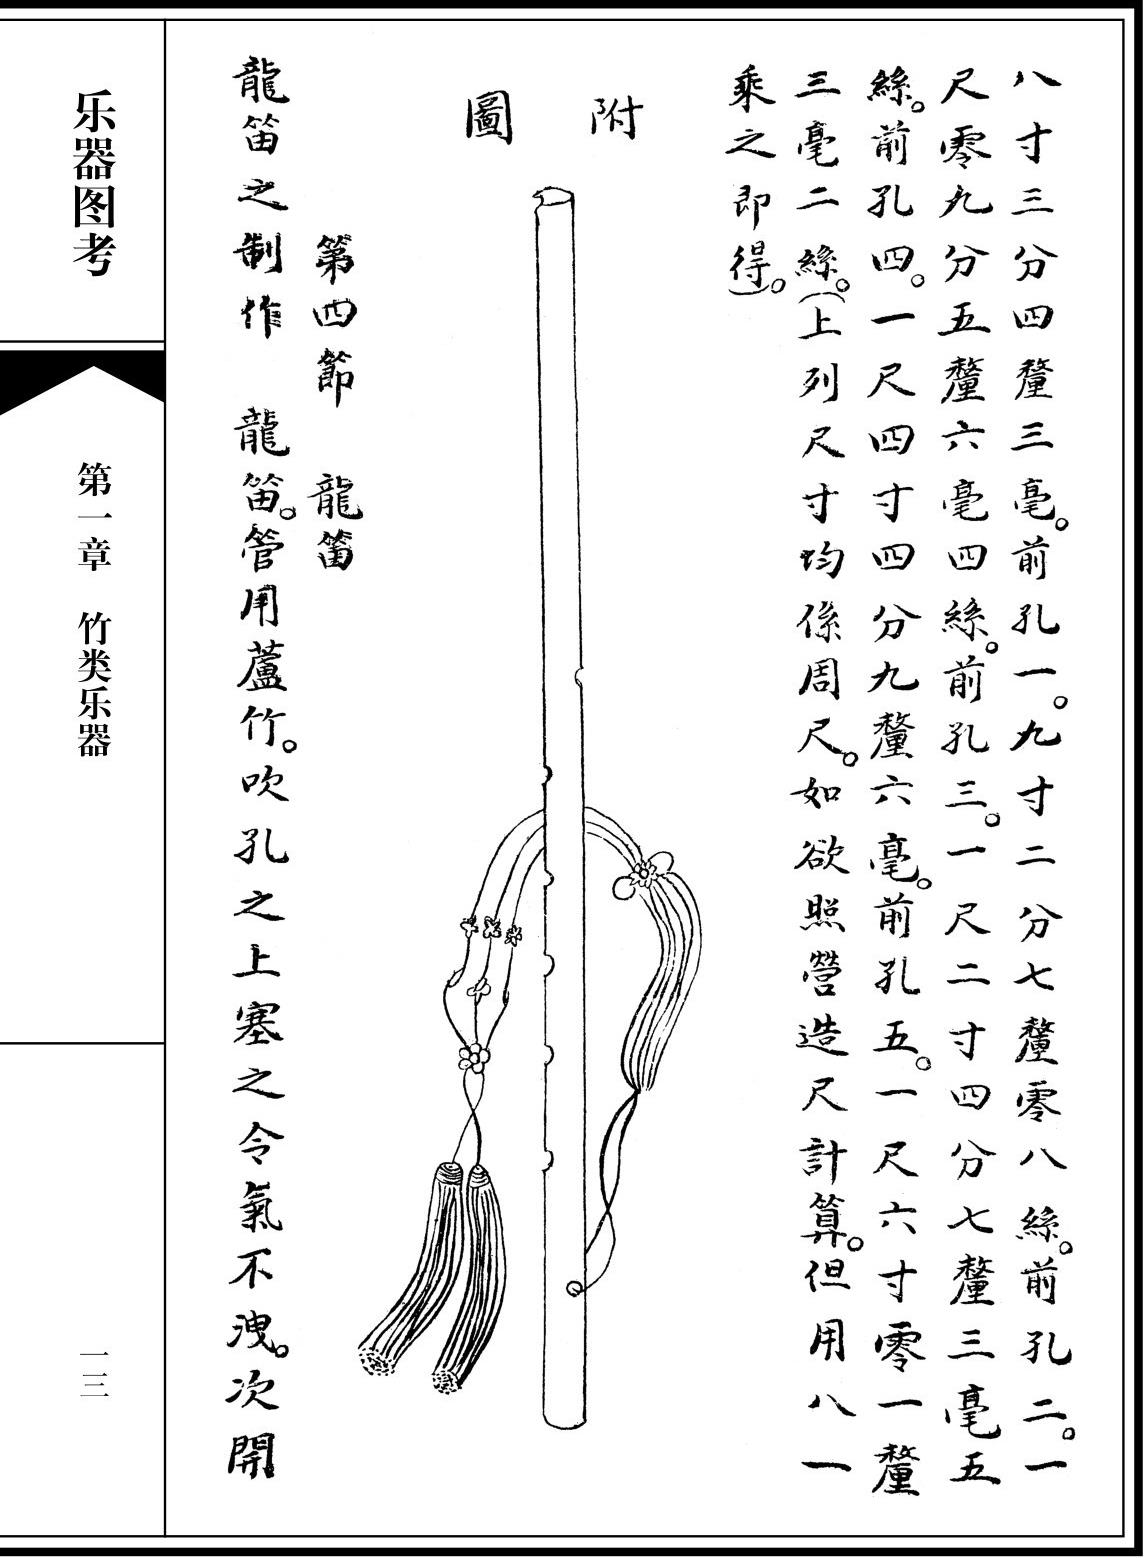 八寸三分四釐三毫。前孔一。九寸二分七釐零八絲。前孔二。一
尺零九分五釐六毫四絲。前孔三。一尺二寸四分七釐三毫五
絲。前孔四。一尺四寸四分九釐六毫。前孔五。一尺六寸零一釐
三毫二絲。（上列尺寸均係周尺。如欲照營造尺計算。但用八一
乘之即得）。
附圖
第四節　龍笛
龍笛之制作　龍笛。管用蘆竹。吹孔之上塞之令氣不洩。次開
乐器图考
第一章　竹类乐器
一三